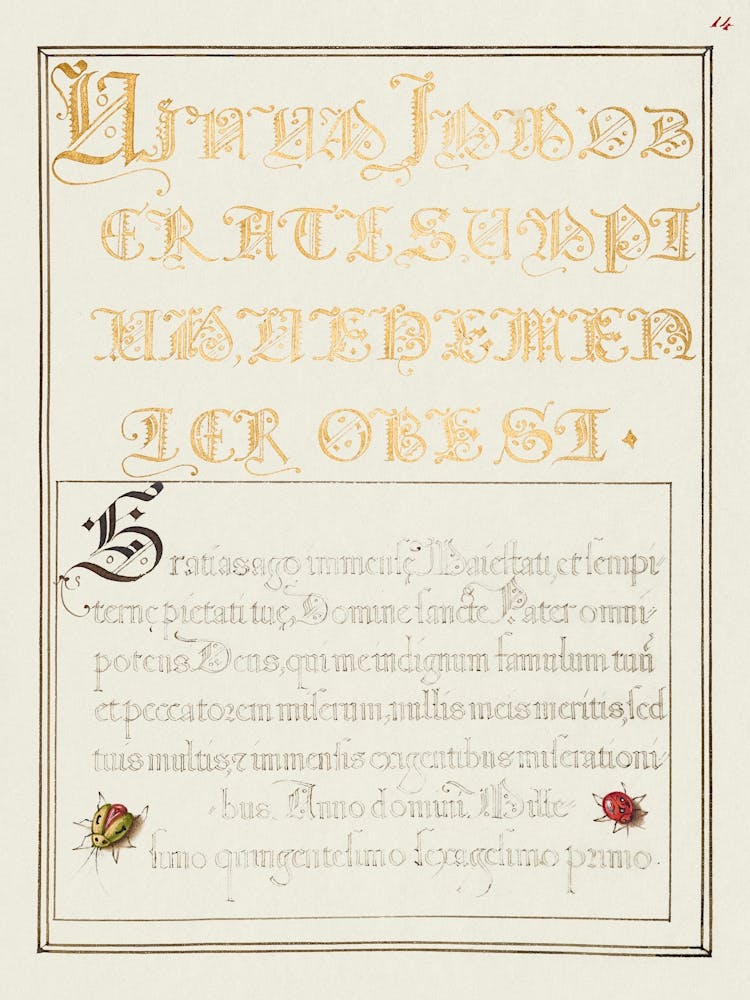 14
UINUM IMMOD
ERATE SUMPT
UM, UEHEMEN
TER OBEST.
Gratias ago immensę Maiestati, et sempi-
ternę pietati tuę, Domine sancte Pater omni-
potens Deus, qui me indignum famulum tuū
et peccatorem miserum, nullis meis meritis, sed
tuis multis, ⁊ immensis exigentibus miserationi-
bus. Anno domini. Mille-
simo quingentesimo sexagesimo primo.